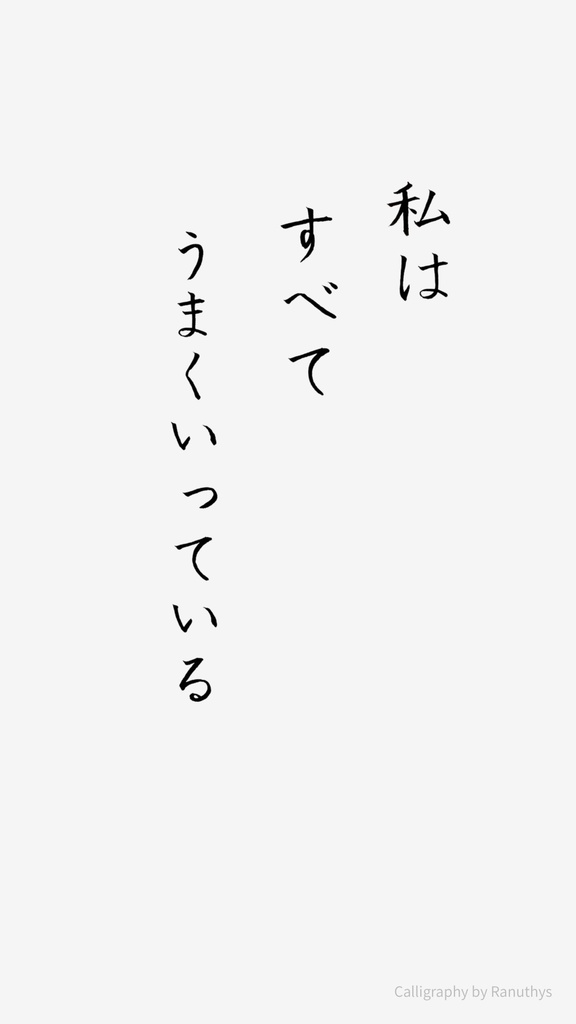 私は
すべて
うまくいっている
Calligraphy by Ranuthys